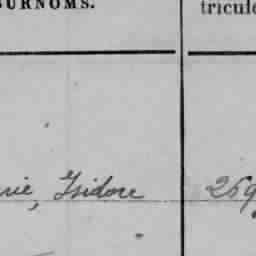 SURNOMS. tricule
rie, Isidore 269